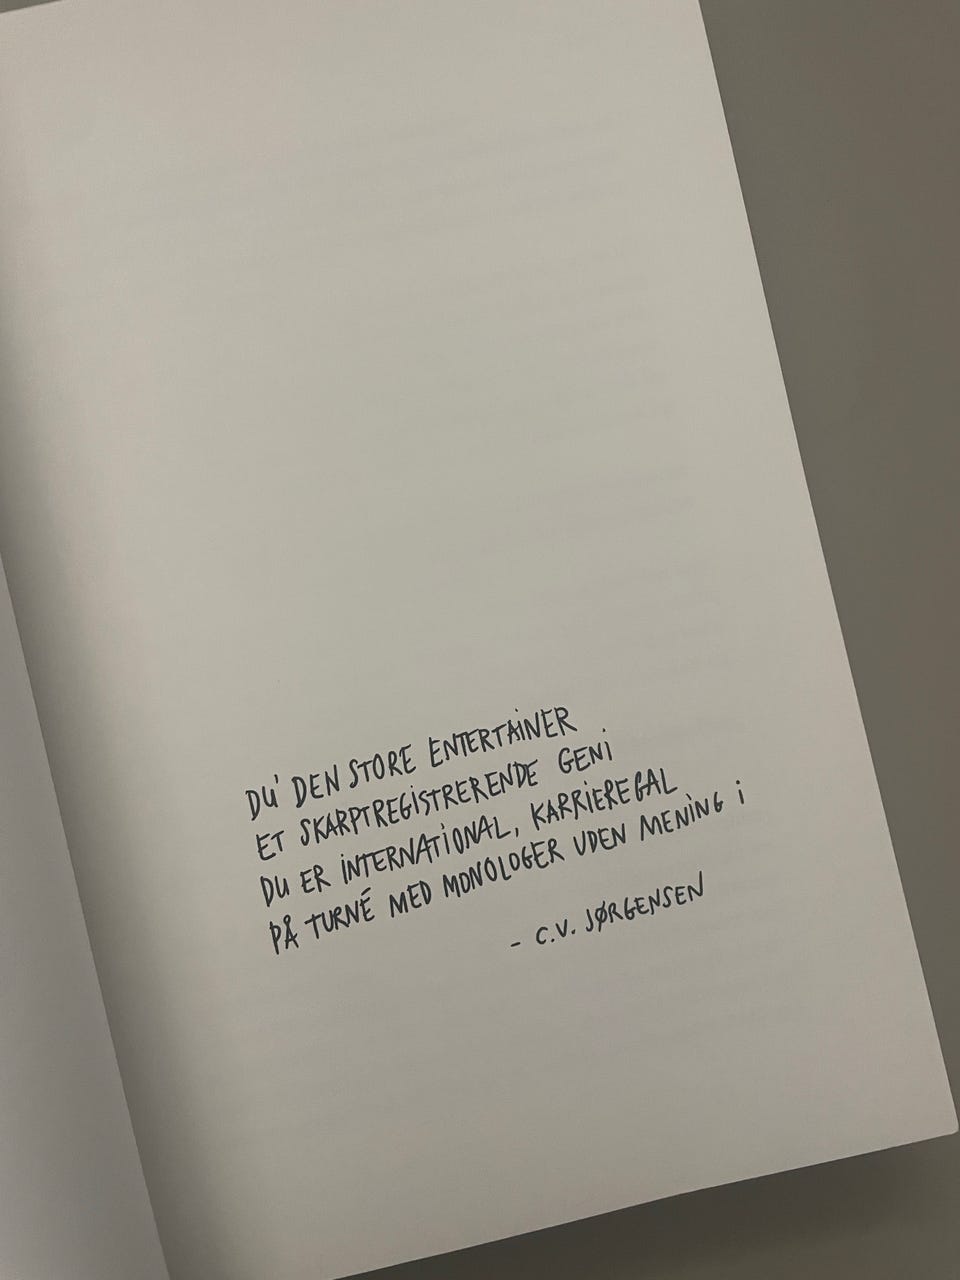 DU' DEN STORE ENTERTAINER
ET SKARPTREGISTRERENDE GENI
DU ER INTERNATIONAL, KARRIEREGAL
PÅ TURNÉ MED MONOLOGER UDEN MENING I
- C.V. JØRGENSEN